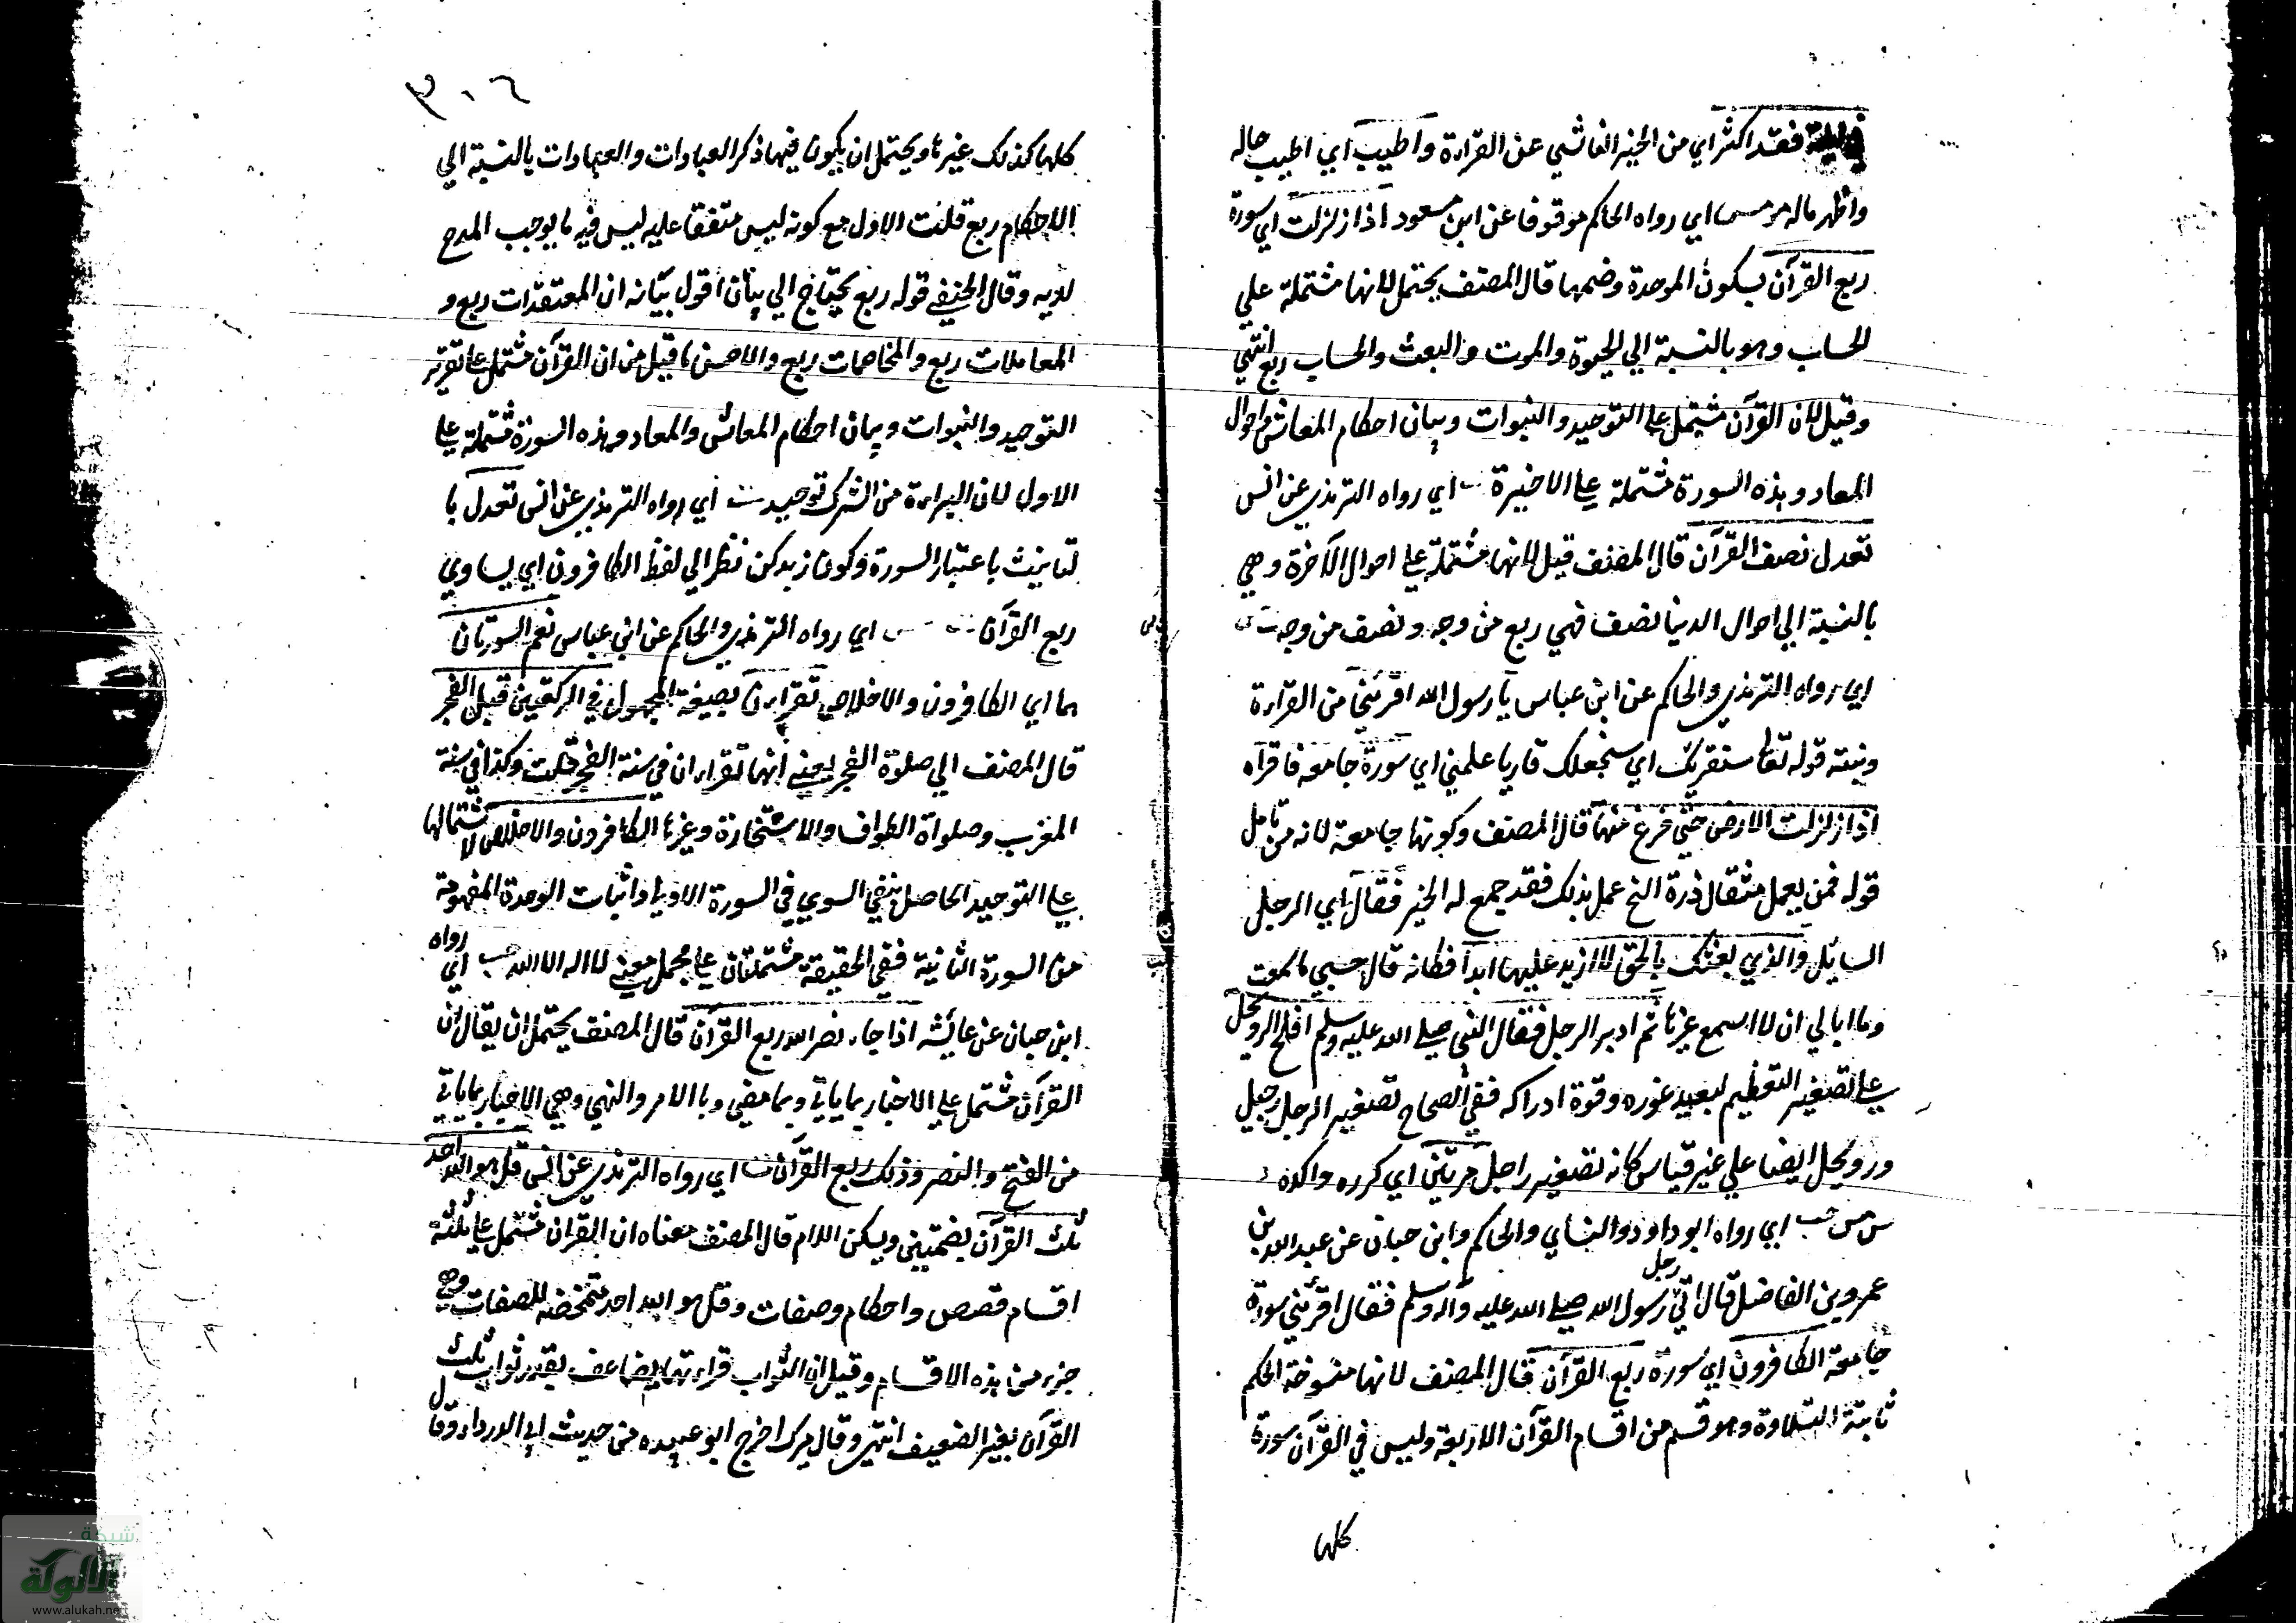 فقد اكثر اي من الخير الناشي عن القراءة واطيب اي اطيب حاله
واظهر ماله مو مس اي رواه الحاكم موقوفا عن ابن مسعود اذا زلزلت اي سورة
ربع القرآن بسكون الموحدة وضمها قال المصنف يحتمل لانها مشتملة علي
الحساب وهو بالنسبة الي الحيوة والموت والبعث والحساب ربع انتهي
وقيل لان القرآن مشتمل علي التوحيد والنبوات وبيان احكام المعاش واحوال
المعاد وهذه السورة مشتملة علي الاخيرة ت اي رواه الترمذي عن انس
تعدل نصف القرآن قال المصنف قيل لانها مشتملة علي احوال الآخرة وهي
بالنسبة الي احوال الدنيا نصف فهي ربع من وجه ونصف من وجه ت
اي رواه الترمذي والحاكم عن ابن عباس يا رسول الله اقرئني من القراءة
ومنه قوله تعا سنقرئك اي سنجعلك قاريا علمني اي سورة جامعة فاقرأه
اذا زلزلت الارض حتي فرغ منها قال المصنف وكونها جامعة لانه من تامل
قوله فمن يعمل مثقال ذرة الخ عمل بذلك فقد جمع له الخير فقال اي الرجل
السائل والذي بعثك بالحق لا ازيد عليها ابدا فكانه قال حسبي ما سمعت
وما ابالي ان لا اسمع غيرها ثم ادبر الرجل فقال النبي صلي الله عليه وسلم افلح الرويجل
علي تصغير التعظيم لبعد غوره وقوة ادراكه ففي الصحاح تصغير الرجل رجيل
ورويجل ايضا علي غير قياس كانه تصغير راجل مرتين اي كرره واكده د
س مس حب اي رواه ابو داود والنسائي والحاكم وابن حبان عن عبد الله بن
عمرو بن الفاضل قال اتي رجل رسول الله صلي الله عليه وآله وسلم فقال اقرئني سورة
جامعة الكافرون اي سورة ربع القرآن قال المصنف لانها منسوخة الحكم
ثابتة التلاوة وهو قسم من اقسام القرآن الاربعة وليس في القرآن سورة
كلها
٣٠٦
كلها كذلك غيرها ويحتمل ان يكون فيها ذكر العبادات والعبادات بالنسبة الي
الاحكام ربع قلت الاول مع كونه ليس متفقا عليه ليس فيه ما يوجب المدح
لديه وقال الحنفي قوله ربع يحتاج الي بيان اقول بيانه ان المعتقدات ربع و
المعاملات ربع والمخاصمات ربع والاحسن ما قيل من ان القرآن مشتمل علي تقرير
التوحيد والنبوات وبيان احكام المعاش والمعاد وهذه السورة مشتملة علي
الاول لان البراءة من الشرك توحيد ت اي رواه الترمذي عن انس تعدل با
لتانيث باعتبار السورة وكونها نظر الي لفظ الكافرون اي يساوي
ربع القرآن ت مس اي رواه الترمذي والحاكم عن ابن عباس نعم السورتان
هما اي الكافرون والاخلاص تقرءان بصيغة المجهول في الركعتين قبل الفجر
قال المصنف الي صلوة الفجر يعني انهما تقراءن في سنة الفجر قلت وكذا في سنة
المغرب وصلواة الطواف والاستخارة وغيرها الكافرون والاخلاص لاشتمالها
علي التوحيد الحاصل بنفي السوي في السورة الاولي واثبات الوحدة المفهومة
من السورة الثانية ففي الحقيقة مشتملتان علي مجمل معني لا اله الا الله حب اي رواه
ابن حبان عن عايشه اذا جاء نصر الله ربع القرآن قال المصنف يحتمل ان يقال ان
القرآن مشتمل علي الاخبار بما ياتي وبما مضي وبالامر والنهي وهي الاخبار بما ياتي
من الفتح والنصر وذلك ربع القرآن ت اي رواه الترمذي عن انس قل هو الله احد
ثلث القرآن بضمتين ويسكن اللام قال المصنف معناه ان القران مشتمل علي ثلثة
اقسام قصص واحكام وصفات وقل هو الله احد متمحضة للصفات وهي
جزء من هذه الاقسام وقيل ان ثواب قراءتها يضاعف بقدر ثواب ثلث
القرآن بغير الضعيف انتهي وقال ميرك اخرج ابو عبيده من حديث ابي الدرداء وقال
شبكة
الألوكة
www.alukah.ne